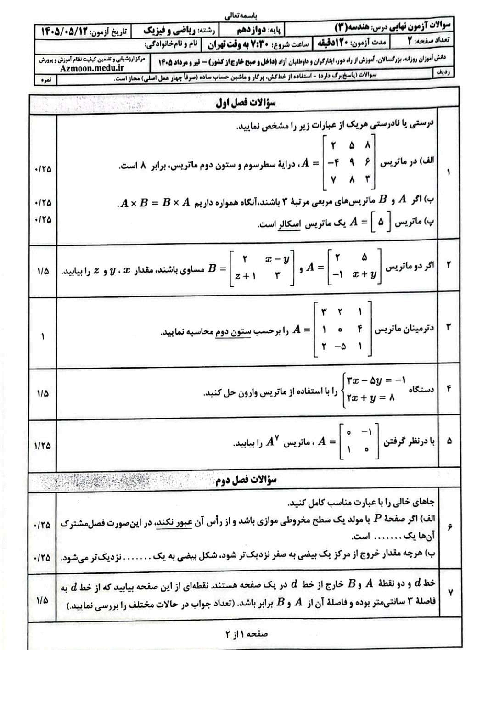 باسمه‌تعالی
سؤالات آزمون نهایی درس: هندسه (۳) پایه: دوازدهم رشته: ریاضی و فیزیک تاریخ آزمون: ۱۴۰۵/۰۵/۱۲
تعداد صفحه: ۲ مدت آزمون: ۱۲۰ دقیقه ساعت شروع: ۷:۳۰ به وقت تهران نام و نام‌خانوادگی:
دانش آموزان روزانه، بزرگسالان، آموزش از راه دور، ایثارگران و داوطلبان آزاد (داخل و صبح خارج از کشور) – تیر و مرداد ۱۴۰۵
مرکز ارزشیابی و تضمین کیفیت نظام آموزش و پرورش
Azmoon.medu.ir
ردیف سؤالات (پاسخ‌برگ دارد) - استفاده از خط‌کش، پرگار و ماشین حساب ساده (صرفاً چهار عمل اصلی) مجاز است. نمره
سؤالات فصل اول
۱ درستی یا نادرستی هریک از عبارات زیر را مشخص نمایید.
الف) در ماتریس A = [۲ ۵ ۸ / -۴ ۹ ۶ / ۷ ۸ ۳]، درایهٔ سطر سوم و ستون دوم ماتریس، برابر ۸ است. ۰/۲۵
ب) اگر A و B ماتریس‌های مربعی مرتبهٔ ۳ باشند، آنگاه همواره داریم A × B = B × A. ۰/۲۵
پ) ماتریس A = [۵] یک ماتریس اسکالر است. ۰/۲۵
۲ اگر دو ماتریس A = [۲ ۵ / -۱ x+y] و B = [۲ x-y / z+۱ ۳] مساوی باشند، مقدار x، y و z را بیابید. ۱/۵
۳ دترمینان ماتریس A = [۳ ۲ ۱ / ۱ ۰ ۴ / ۲ -۵ ۱] را برحسب ستون دوم محاسبه نمایید. ۱
۴ دستگاه {۳x - ۵y = -۱ / ۲x + y = ۸ را با استفاده از ماتریس وارون حل کنید. ۱/۵
۵ با درنظر گرفتن A = [۰ -۱ / ۱ ۰]، ماتریس A^۷ را بیابید. ۱/۲۵
سؤالات فصل دوم
۶ جاهای خالی را با عبارت مناسب کامل کنید.
الف) اگر صفحهٔ P با مولد یک سطح مخروطی موازی باشد و از رأس آن عبور نکند، در این‌صورت فصل‌مشترک ۰/۲۵
آن‌ها یک ....... است.
ب) هرچه مقدار خروج از مرکز یک بیضی به صفر نزدیک‌تر شود، شکل بیضی به یک ....... نزدیک‌تر می‌شود. ۰/۲۵
۷ خط d و دو نقطهٔ A و B خارج از خط d در یک صفحه هستند. نقطه‌ای از این صفحه بیابید که از خط d به
فاصلهٔ ۳ سانتی‌متر بوده و فاصلهٔ آن از A و B برابر باشد. (تعداد جواب در حالات مختلف را بررسی نمایید.) ۱/۵
صفحه ۱ از ۲